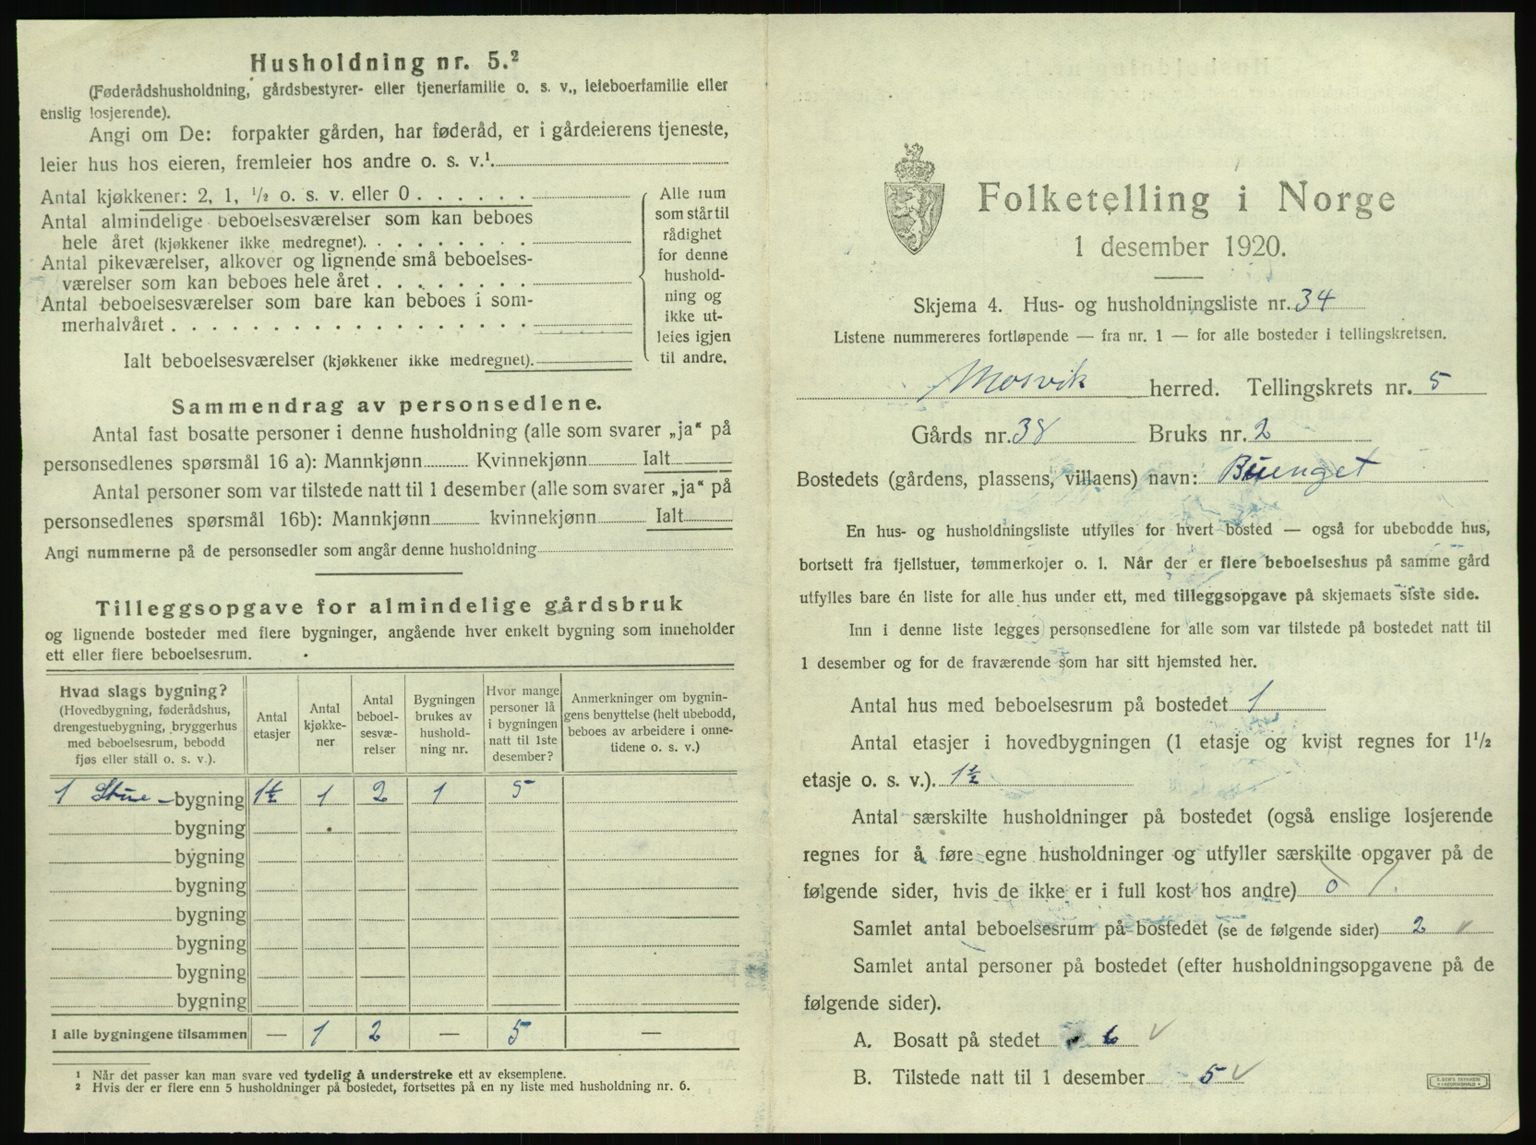 Husholdning nr. 5.²
(Føderådshusholdning, gårdsbestyrer- eller tjenerfamilie o. s. v., leieboerfamilie eller
enslig losjerende).
Angi om De: forpakter gården, har føderåd, er i gårdeierens tjeneste,
leier hus hos eieren, fremleier hos andre o. s. v.¹
Antal kjøkkener: 2, 1, ½ o. s. v. eller 0 . . . . . .
Antal almindelige beboelsesværelser som kan beboes
hele året (kjøkkener ikke medregnet). . . . . . . .
Antal pikeværelser, alkover og lignende små beboelses-
værelser som kan beboes hele året . . . . . . . .
Antal beboelsesværelser som bare kan beboes i som-
merhalvåret . . . . . . . . . . . . . . . . . .
Ialt beboelsesværelser (kjøkkener ikke medregnet).
Alle rum
som står til
rådighet
for denne
hushold-
ning og
ikke ut-
leies igjen
til andre.
Sammendrag av personsedlene.
Antal fast bosatte personer i denne husholdning (alle som svarer „ja“ på
personsedlenes spørsmål 16 a): Mannkjønn Kvinnekjønn Ialt
Antal personer som var tilstede natt til 1 desember (alle som svarer „ja“ på
personsedlenes spørsmål 16b): Mannkjønn kvinnekjønn Ialt
Angi nummerne på de personsedler som angår denne husholdning
Tilleggsopgave for almindelige gårdsbruk
og lignende bosteder med flere bygninger, angående hver enkelt bygning som inneholder
ett eller flere beboelsesrum.
Hvad slags bygning?
(Hovedbygning, føderådshus,
drengestuebygning, bryggerhus
med beboelsesrum, bebodd
fjøs eller stall o. s. v.).
Antal
etasjer
Antal
kjøkke-
ner
Antal
beboel-
sesvæ-
relser
Bygningen
brukes av
hushold-
ning nr.
Hvor mange
personer lå
i bygningen
natt til 1ste
desember?
Anmerkninger om bygnin-
gens benyttelse (helt ubebodd,
beboes av arbeidere i onne-
tidene o. s. v.)
1 Stue-bygning 1½ 1 2 1 5
bygning
bygning
bygning
bygning
bygning
bygning
bygning
I alle bygningene tilsammen — 1 2 — 5 —
¹ Når det passer kan man svare ved tydelig å understreke ett av eksemplene.
² Hvis der er flere enn 5 husholdninger på bostedet, fortsettes på en ny liste med husholdning nr. 6.
Folketelling i Norge
1 desember 1920.
Skjema 4. Hus- og husholdningsliste nr. 34
Listene nummereres fortløpende — fra nr. 1 — for alle bosteder i tellingskretsen.
Mosvik herred. Tellingskrets nr. 5
Gårds nr. 38 Bruks nr. 2
Bostedets (gårdens, plassens, villaens) navn: Buenget
En hus- og husholdningsliste utfylles for hvert bosted — også for ubebodde hus,
bortsett fra fjellstuer, tømmerkojer o. l. Når der er flere beboelseshus på samme gård
utfylles bare én liste for alle hus under ett, med tilleggsopgave på skjemaets siste side.
Inn i denne liste legges personsedlene for alle som var tilstede på bostedet natt til
1 desember og for de fraværende som har sitt hjemsted her.
Antal hus med beboelsesrum på bostedet 1
Antal etasjer i hovedbygningen (1 etasje og kvist regnes for 1½
etasje o. s. v.). 1½
Antal særskilte husholdninger på bostedet (også enslige losjerende
regnes for å føre egne husholdninger og utfyller særskilte opgaver på de
følgende sider, hvis de ikke er i full kost hos andre) 0 1.
Samlet antal beboelsesrum på bostedet (se de følgende sider) 2 √
Samlet antal personer på bostedet (efter husholdningsopgavene på de
følgende sider).
A. Bosatt på stedet 6 √
B. Tilstede natt til 1 desember 5 √